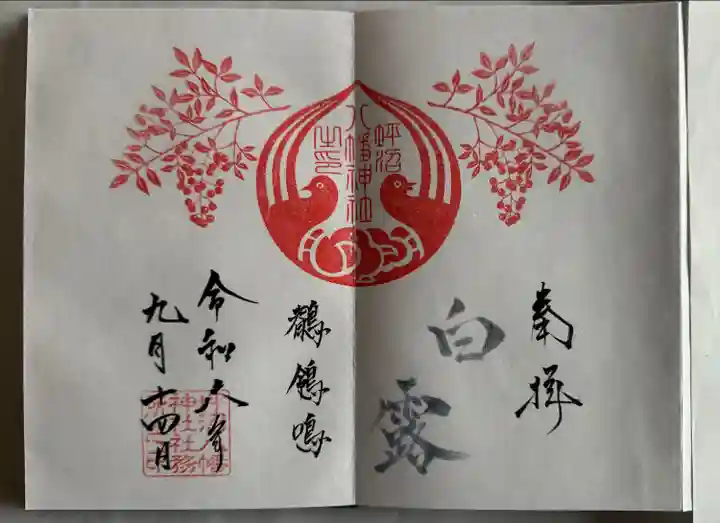 奉拝
白露
八幡神社
之印
鶺鴒鳴
令和六年
九月十四日
神社社務
所之印